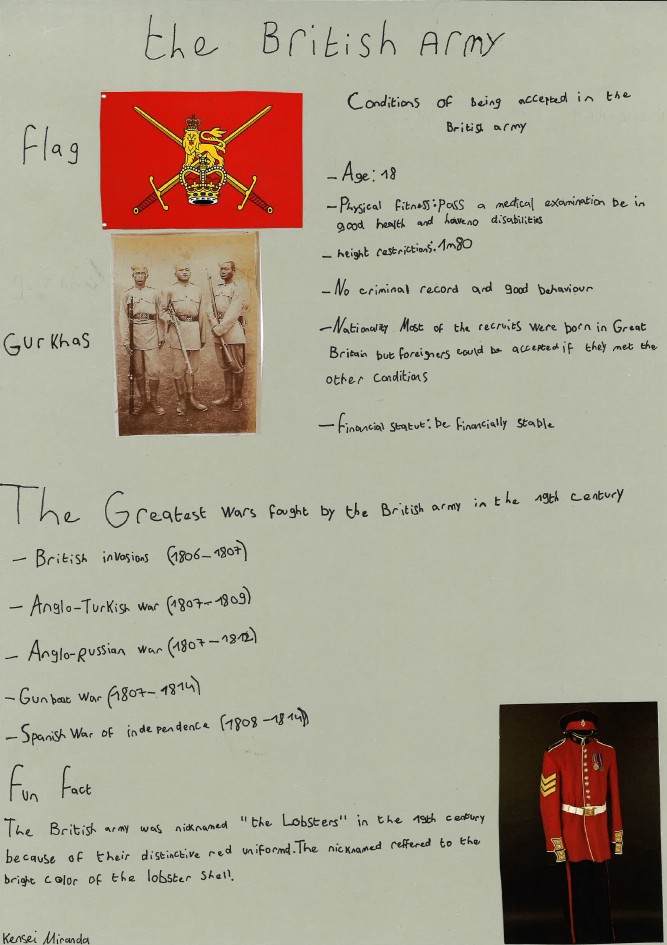 the British Army
Flag
Gurkhas
Conditions of being accepted in the
British army
- Age: 18
- Physical fitness: pass a medical examination be in
good health and have no disabilities
- height restrictions: 1m80
- No criminal record and good behaviour
- Nationality Most of the recruits were born in Great
Britain but foreigners could be accepted if they met the
other conditions
- Financial statut: be financially stable
The Greatest wars fought by the British army in the 19th century
- British invasions (1806-1807)
- Anglo-Turkish war (1807-1809)
- Anglo-Russian war (1807-1812)
- Gunboat War (1807-1814)
- Spanish War of independence (1808-1814)
Fun Fact
The British army was nicknamed "the Lobsters" in the 19th century
because of their distinctive red uniformd. The nicknamed reffered to the
bright color of the lobster shell.
Kensei Miranda